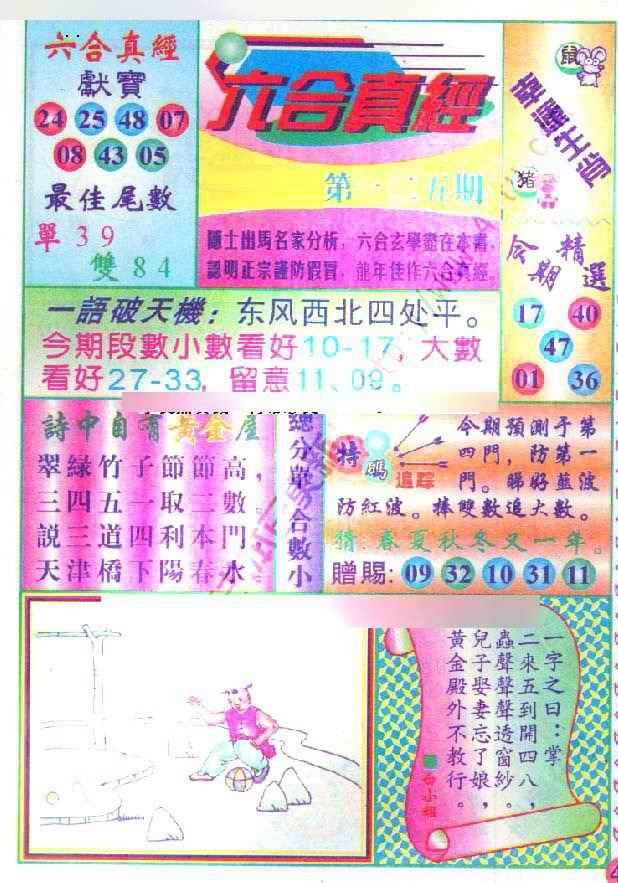 六合真經
獻寶
24 25 48 07
08 43 05
最佳尾數
單39
雙84
六合真經
第一二五期
隱士出馬名家分析，六合玄學盡在本書，
認明正宗謹防假冒，龍年佳作六合真經。
鼠
幸運生肖
豬
今期精選
17 40
47
01 36
一語破天機：东风西北四处平。
今期段數小數看好10-17，大數
看好27-33，留意11、09。
詩中自有黃金屋
翠綠竹子節節高，
三四五一取二數。
説三道四利本門
天津橋下陽春水
總分單
合數小
特碼
追踪
今期預測于第
四門，防第一
門。睇好藍波
防紅波。捧雙數追大數。
猜：春夏秋冬又一年。
贈賜：09 32 10 31 11
一字之曰：掌
二來五到開四八，
蟲聲聲聲透窗紗。
兒子娶妻忘了娘，
黃金殿外不救行。
小姐
4